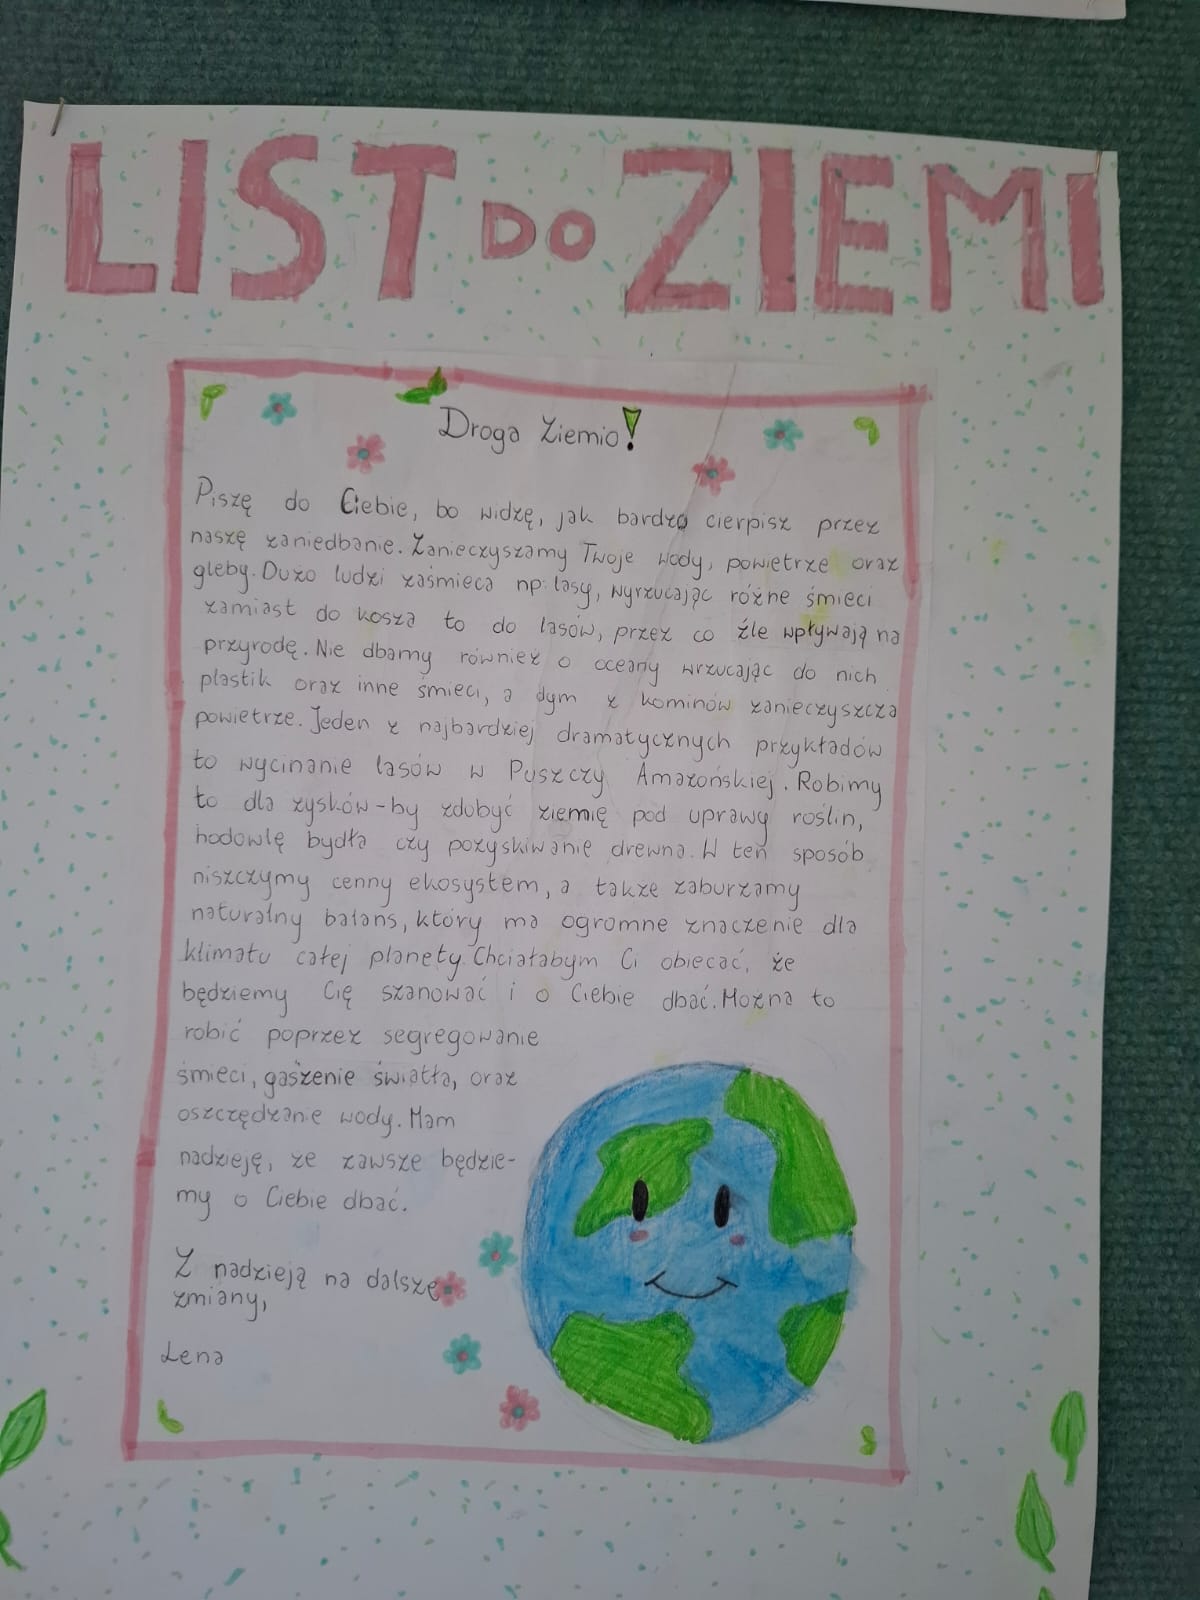 LIST DO ZIEMI
Droga Ziemio!
Piszę do Ciebie, bo widzę, jak bardzo cierpisz przez
naszę zaniedbanie. Zanieczyszamy Twoje wody, powietrze oraz
gleby. Dużo ludzi zaśmieca np. lasy, wyrzucając różne śmieci
zamiast do kosza to do lasów, przez co źle wpływają na
przyrodę. Nie dbamy również o oceany wrzucając do nich
plastik oraz inne śmieci, a dym z kominów zanieczyszcza
powietrze. Jeden z najbardziej dramatycznych przykładów
to wycinanie lasów w Puszczy Amazońskiej. Robimy
to dla zysków - by zdobyć ziemię pod uprawy roślin,
hodowlę bydła czy pozyskiwanie drewna. W ten sposób
niszczymy cenny ekosystem, a także zaburzamy
naturalny balans, który ma ogromne znaczenie dla
klimatu całej planety. Chciałabym Ci obiecać, że
będziemy Cię szanować i o Ciebie dbać. Można to
robić poprzez segregowanie
śmieci, gaszenie światła, oraz
oszczędzanie wody. Mam
nadzieję, że zawsze będzie-
my o Ciebie dbać.
Z nadzieją na dalszę
zmiany,
Lena